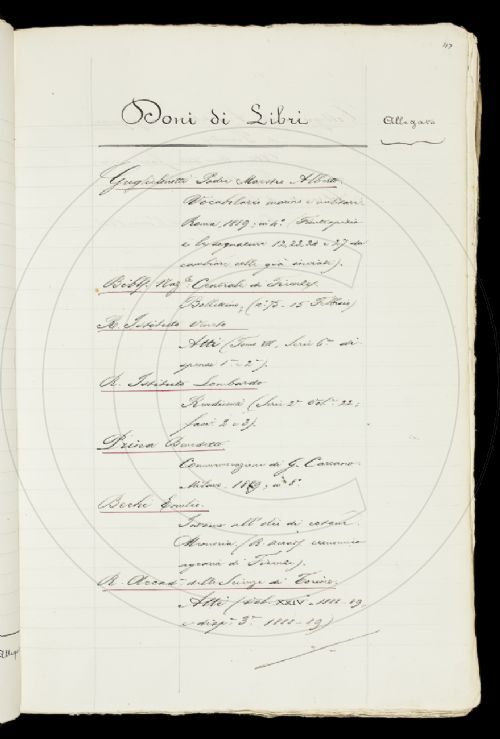 117
Doni di Libri
Allegato
Guglielmotti Padre Maestro Alberto
Vocabolario marino e militare
Roma, 1889; in 4°. (Frontespizio
e le segnature 12, 22, 24 e 27 da
cambiare colle già inviate).
Bibl. Naz.le Centrale di Firenze.
Bollettino, (n° 75 - 15 Febbraio)
R. Istituto Veneto
Atti (Tomo VII, Serie 6a di
spense 1a - 2a).
R. Istituto Lombardo
Rendiconti (Serie 2a Vol. 22;
fasci 2 e 3).
Prina Benedetto
Commemorazione di G. Carcano
Milano, 1889; in 8°
Bechi Emilio.
Intorno all' olio di cotone.
Memoria (R. Accad. economico
agraria di Firenze).
R. Accad. delle Scienze di Torino.
Atti (Vol. XXIV - 1888-89,
disp. 3a 1888-89)
Allega